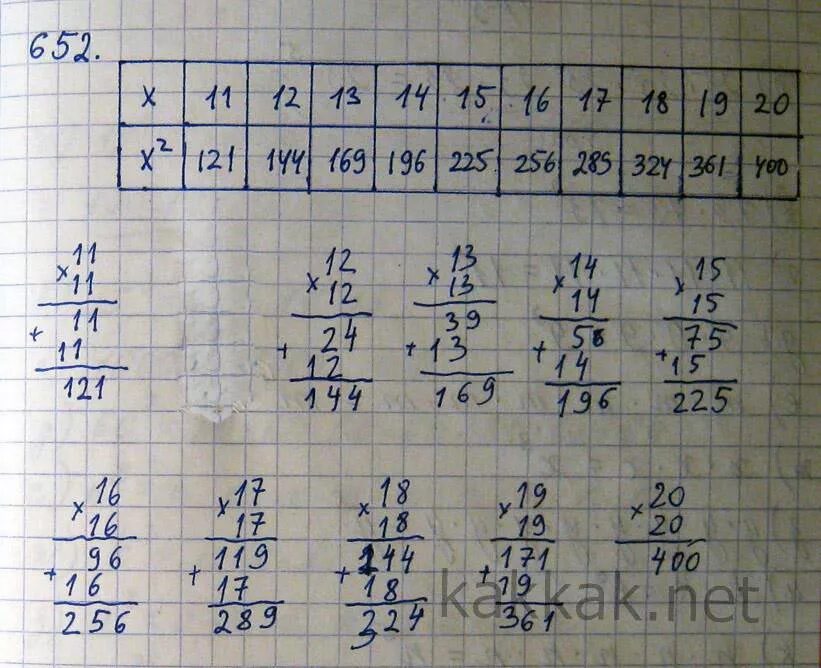 652.
x 11 12 13 14 15 16 17 18 19 20
x² 121 144 169 196 225 256 289 324 361 400
11 12 13 14 15
x 11 x 12 x 13 x 14 x 15
11 24 39 56 75
+ 11 + 12 + 13 + 14 + 15
121 144 169 196 225
16 17 18 19 20
x 16 x 17 x 18 x 19 x 20
96 119 144 171 400
+ 16 + 17 + 18 + 19
256 289 324 361
kakkak.net